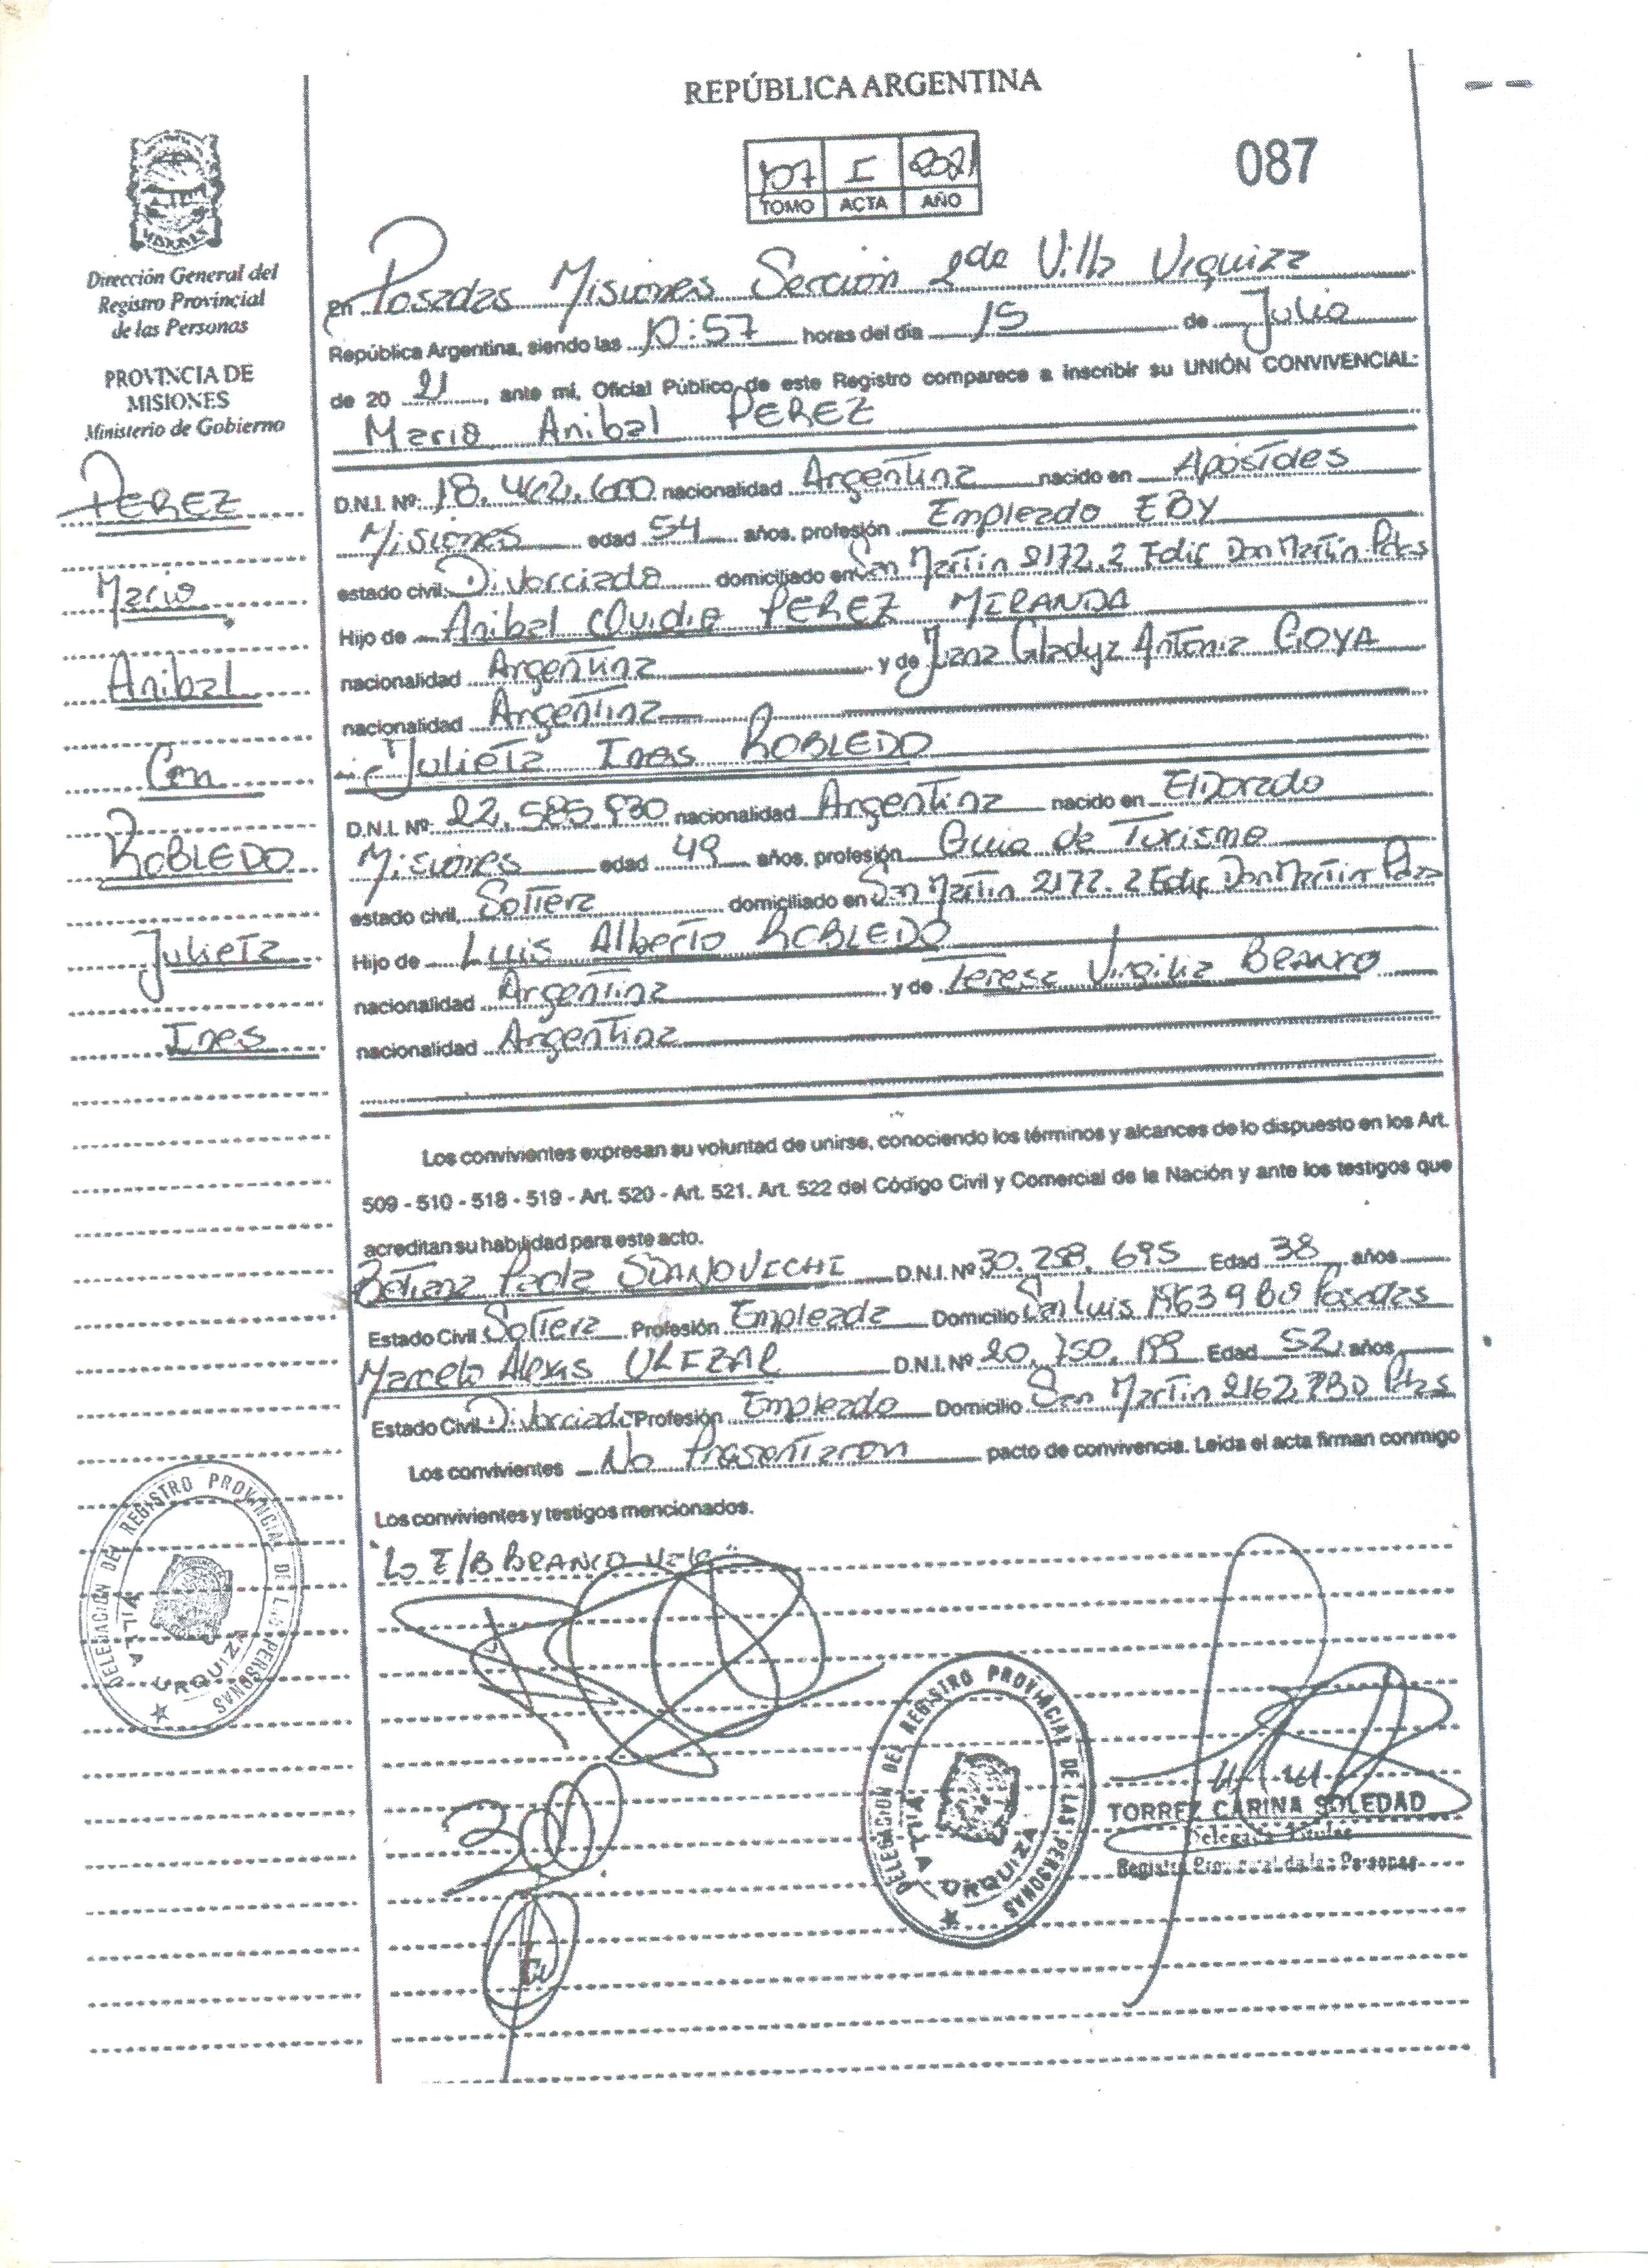 REPÚBLICA ARGENTINA
107 I 2021
TOMO ACTA AÑO
087
Dirección General del
Registro Provincial
de las Personas
PROVINCIA DE
MISIONES
Ministerio de Gobierno
PEREZ
Mario
Anibal
Con
ROBLEDO
Julieta
Ines
En Posadas Misiones Sección 2da Villa Urquiza
República Argentina, siendo las 10:57 horas del día 15 de Julio
de 20 21, ante mí, Oficial Público de este Registro comparece a inscribir su UNIÓN CONVIVENCIAL:
Mario Anibal PEREZ
D.N.I. Nº: 18.462.600 nacionalidad Argentina nacido en Apóstoles
Misiones edad 54 años, profesión Empleado EBY
estado civil: Divorciado domiciliado en San Martin 2172.2 Edif Don Martin Pdas
Hijo de Anibal PEREZ MIRANDA
nacionalidad Argentina y de Juana Gladyz Antonia GOYA
nacionalidad Argentina
Julieta Ines ROBLEDO
D.N.I. Nº: 22.585.830 nacionalidad Argentina nacido en ElDorado
Misiones edad 49 años, profesión Guia de Turismo
estado civil, Soltera domiciliado en San Martin 2172.2 Edif Don Martin Pdas
Hijo de Luis Alberto ROBLEDO
nacionalidad Argentina y de Teresa Virgilia BRANCO
nacionalidad Argentina
Los convivientes expresan su voluntad de unirse, conociendo los términos y alcances de lo dispuesto en los Art.
509 - 510 - 518 - 519 - Art. 520 - Art. 521. Art. 522 del Código Civil y Comercial de la Nación y ante los testigos que
acreditan su habilidad para este acto.
Betiana Paola D.N.I. Nº 30.258.695 Edad 38 años
Estado Civil Soltera Profesión Empleada Domicilio San Luis Posadas
Marcelo Alexis D.N.I. Nº 20.750.199 Edad 52 años
Estado Civil Divorciado Profesión Empleado Domicilio San Martin Pdas
Los convivientes No Presentaron pacto de convivencia. Leída el acta firman conmigo
Los convivientes y testigos mencionados.
"Lo E/B BRANCO Vale"
DELEGACION DEL REGISTRO PROVINCIAL DE LAS PERSONAS
VILLA URQUIZA
DELEGACION DEL REGISTRO PROVINCIAL DE LAS PERSONAS
VILLA URQUIZA
TORREZ CARINA SOLEDAD
Delegada Titular
Registro Provincial de las Personas